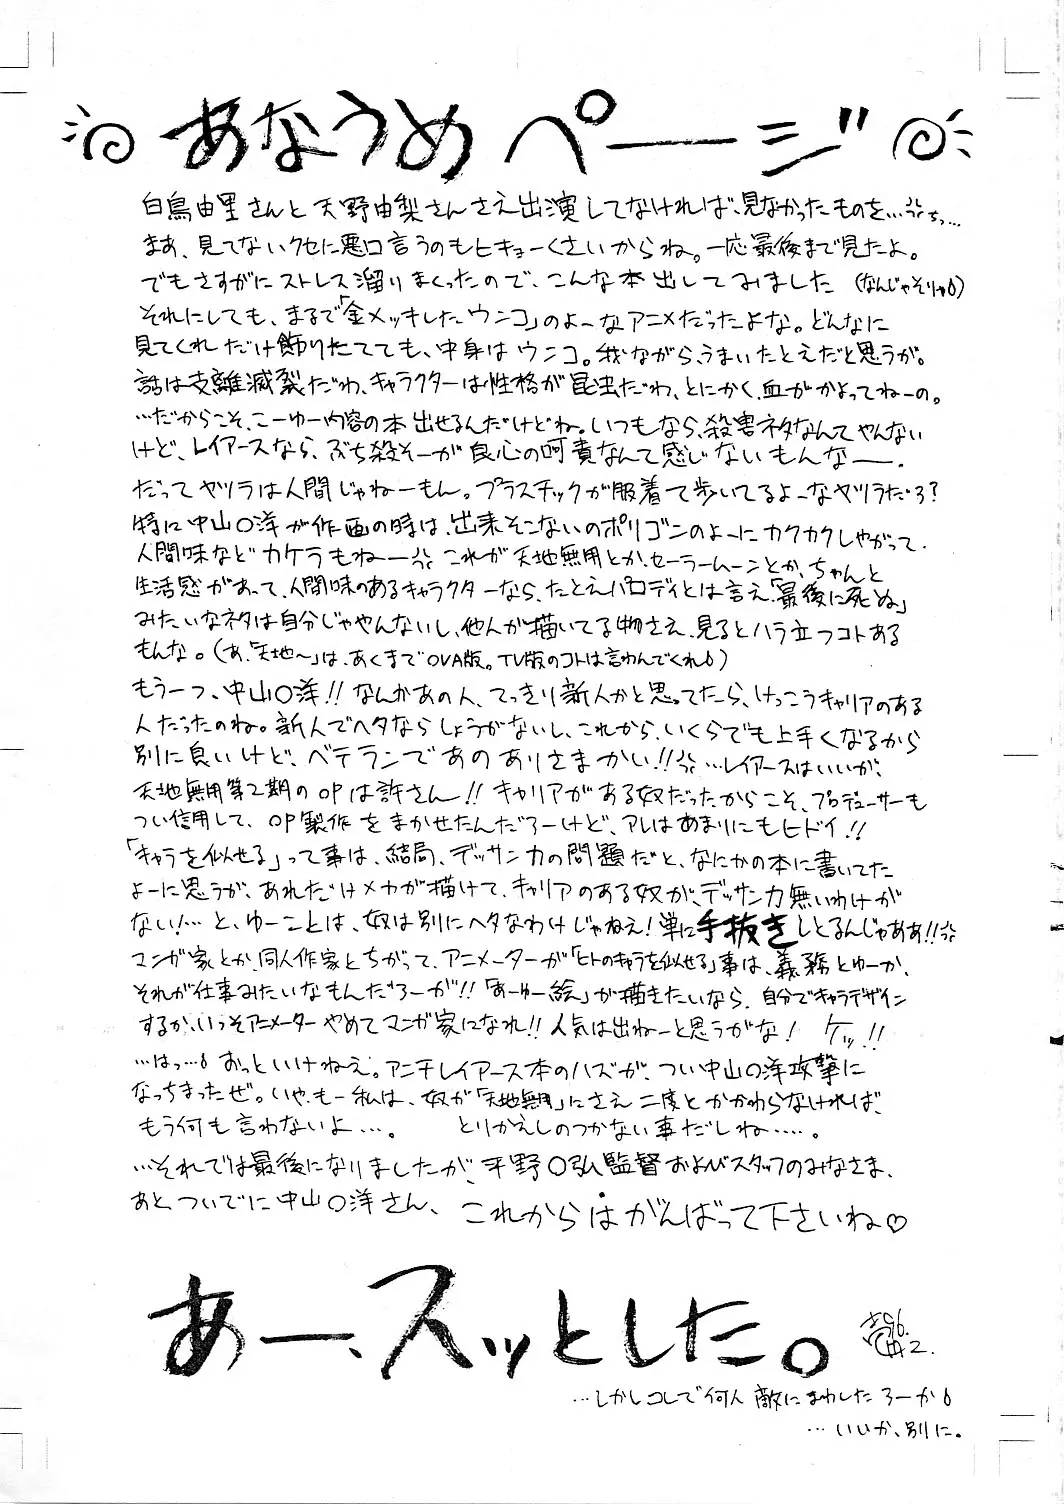 あなうめページ
白鳥由里さんと天野由梨さんさえ出演してなければ、見なかったものを…ちっ…
まあ、見てないクセに悪口言うのもヒキョーくさいからね。一応最後まで見たよ。
でもさすがにストレス溜りまくったので、こんな本出してみました（なんじゃそりゃ）
それにしても、まるで「金メッキしたウンコ」のよーなアニメだったよな。どんなに
見てくれだけ飾りたてても、中身はウンコ。我ながら、うまいたとえだと思うが。
話は支離滅裂だわ、キャラクターは性格が昆虫だわ、とにかく、血がかよってねーの。
…だからこそ、こーゆー内容の本出せるんだけどね。いつもなら、殺害ネタなんてやんない
けど、レイアースなら、ぶち殺そーが良心の呵責なんて感じないもんなー。
だってヤツラは人間じゃねーもん。プラスチックが服着て歩いてるよーなヤツラだろ？
特に中山〇洋が作画の時は、出来そこないのポリゴンのよーにカクカクしやがって、
人間味などカケラもねー これが天地無用とか、セーラームーンとか、ちゃんと
生活感があって、人間味のあるキャラクターなら、たとえパロディとは言え、「最後に死ぬ」
みたいなネタは自分じゃやんないし、他人が描いてる物さえ、見るとハラ立つコトある
もんな。（あ、「天地〜」は、あくまでOVA版。TV版のコトは言わんでくれ）
もう一つ、中山〇洋!! なんかあの人、てっきり新人かと思ってたら、けっこうキャリアのある
人だったのね。新人でヘタならしょうがないし、これから、いくらでも上手くなるから
別に良いけど、ベテランであのありさまかい!! …レイアースはいいが、
天地無用第2期のOPは許さん!! キャリアがある奴だったからこそ、プロデューサーも
つい信用して、OP製作をまかせたんだろーけど、アレはあまりにもヒドイ!!
「キャラを似せる」って事は、結局、デッサン力の問題だと、なにかの本に書いてた
よーに思うが、あれだけメカが描けて、キャリアのある奴が、デッサン力無いわけが
ない!… と、ゆーことは、奴は別にヘタなわけじゃねえ! 単に手抜きしとるんじゃああ!!
マンガ家とか、同人作家とちがって、アニメーターが「ヒトのキャラを似せる」事は、義務とゆーか、
それが仕事みたいなもんだろーが!! 「あーゆー絵」が描きたいなら、自分でキャラデザイン
するか、いっそアニメーターやめてマンガ家になれ!! 人気は出ねーと思うがな! ケッ!!
…はっ… おっといけねえ。アンチレイアース本のハズが、つい中山〇洋攻撃に
なっちまったぜ。いや、もー私は、奴が「天地無用」にさえ二度とかかわらなければ、
もう何も言わないよ…。 とりかえしのつかない事だしね……。
…それでは最後になりましたが、平野〇弘監督およびスタッフのみなさま、
あと、ついでに中山〇洋さん、これからはがんばって下さいね♡
あー、スッとした。
'96.2.
…しかしコレで何人敵にまわしたろーか
…いいか、別に。